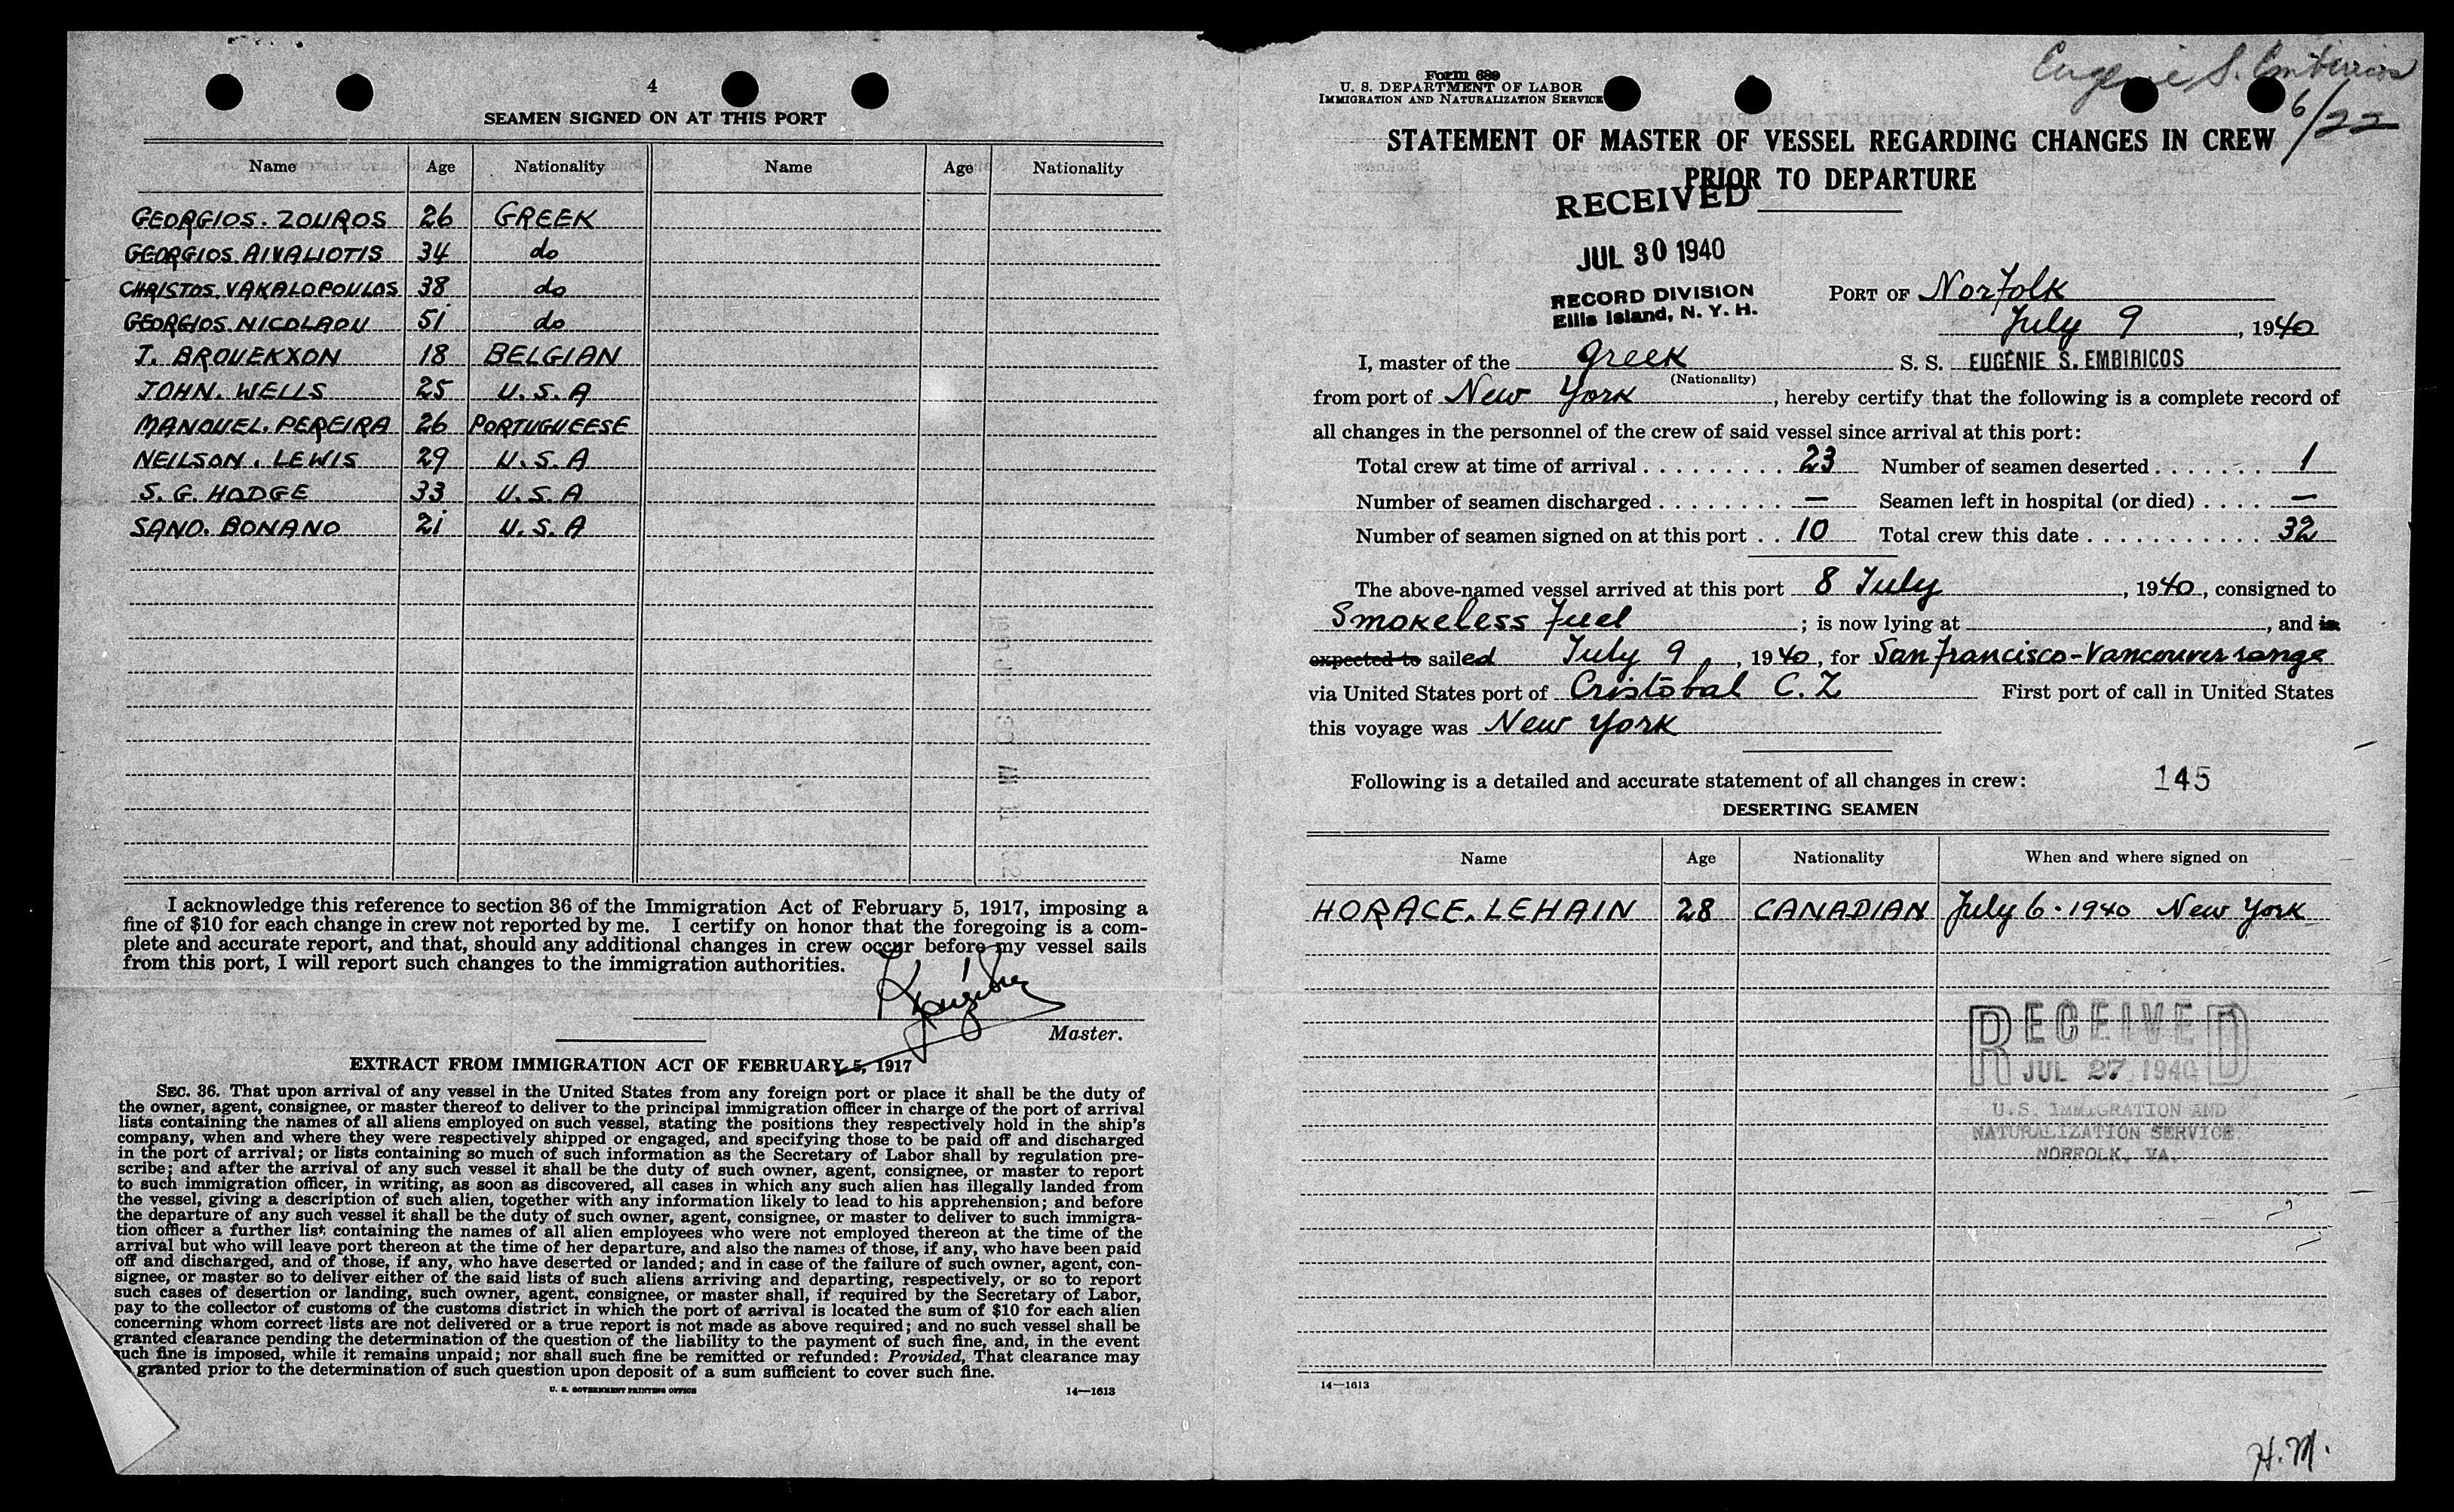 4
SEAMEN SIGNED ON AT THIS PORT
Name Age Nationality Name Age Nationality
GEORGIOS. ZOUROS 26 GREEK
GEORGIOS. AIVALIOTIS 34 do
CHRISTOS. VAKALOPOULOS 38 do
GEORGIOS. NICOLAOU 51 do
J. BROUEKXON 18 BELGIAN
JOHN. WELLS 25 U.S.A
MANOUEL. PEREIRA 26 PORTUGUEESE
NEILSON. LEWIS 29 U.S.A
S. G. HODGE 33 U.S.A
SAND. BONANO 21 U.S.A
I acknowledge this reference to section 36 of the Immigration Act of February 5, 1917, imposing a
fine of $10 for each change in crew not reported by me. I certify on honor that the foregoing is a com-
plete and accurate report, and that, should any additional changes in crew occur before my vessel sails
from this port, I will report such changes to the immigration authorities.
Master.
EXTRACT FROM IMMIGRATION ACT OF FEBRUARY 5, 1917
SEC. 36. That upon arrival of any vessel in the United States from any foreign port or place it shall be the duty of
the owner, agent, consignee, or master thereof to deliver to the principal immigration officer in charge of the port of arrival
lists containing the names of all aliens employed on such vessel, stating the positions they respectively hold in the ship's
company, when and where they were respectively shipped or engaged, and specifying those to be paid off and discharged
in the port of arrival; or lists containing so much of such information as the Secretary of Labor shall by regulation pre-
scribe; and after the arrival of any such vessel it shall be the duty of such owner, agent, consignee, or master to report
to such immigration officer, in writing, as soon as discovered, all cases in which any such alien has illegally landed from
the vessel, giving a description of such alien, together with any information likely to lead to his apprehension; and before
the departure of any such vessel it shall be the duty of such owner, agent, consignee, or master to deliver to such immigra-
tion officer a further list containing the names of all alien employees who were not employed thereon at the time of the
arrival but who will leave port thereon at the time of her departure, and also the names of those, if any, who have been paid
off and discharged, and of those, if any, who have deserted or landed; and in case of the failure of such owner, agent, con-
signee, or master so to deliver either of the said lists of such aliens arriving and departing, respectively, or so to report
such cases of desertion or landing, such owner, agent, consignee, or master shall, if required by the Secretary of Labor,
pay to the collector of customs of the customs district in which the port of arrival is located the sum of $10 for each alien
concerning whom correct lists are not delivered or a true report is not made as above required; and no such vessel shall be
granted clearance pending the determination of the question of the liability to the payment of such fine, and, in the event
such fine is imposed, while it remains unpaid; nor shall such fine be remitted or refunded: Provided, That clearance may
granted prior to the determination of such question upon deposit of a sum sufficient to cover such fine.
U. S. GOVERNMENT PRINTING OFFICE 14—1613
Form 689
U. S. DEPARTMENT OF LABOR
IMMIGRATION AND NATURALIZATION SERVICE
Eugenie S. Embiricos
6/22
STATEMENT OF MASTER OF VESSEL REGARDING CHANGES IN CREW
PRIOR TO DEPARTURE
RECEIVED
JUL 30 1940
RECORD DIVISION
Ellis Island, N. Y. H.
PORT OF Norfolk
July 9, 1940
I, master of the Greek S. S. EUGENIE S. EMBIRICOS
(Nationality)
from port of New York, hereby certify that the following is a complete record of
all changes in the personnel of the crew of said vessel since arrival at this port:
Total crew at time of arrival 23 Number of seamen deserted 1
Number of seamen discharged — Seamen left in hospital (or died) —
Number of seamen signed on at this port 10 Total crew this date 32
The above-named vessel arrived at this port 8 July, 1940, consigned to
Smokeless Fuel; is now lying at , and is
expected to sailed July 9, 1940, for San Francisco-Vancouver range
via United States port of Cristobal C.Z First port of call in United States
this voyage was New York
Following is a detailed and accurate statement of all changes in crew: 145
DESERTING SEAMEN
Name Age Nationality When and where signed on
HORACE. LEHAIN 28 CANADIAN July 6 - 1940 New York
RECEIVED
JUL 27 1940
U.S. IMMIGRATION AND
NATURALIZATION SERVICE
NORFOLK, VA.
14—1613
H.M.